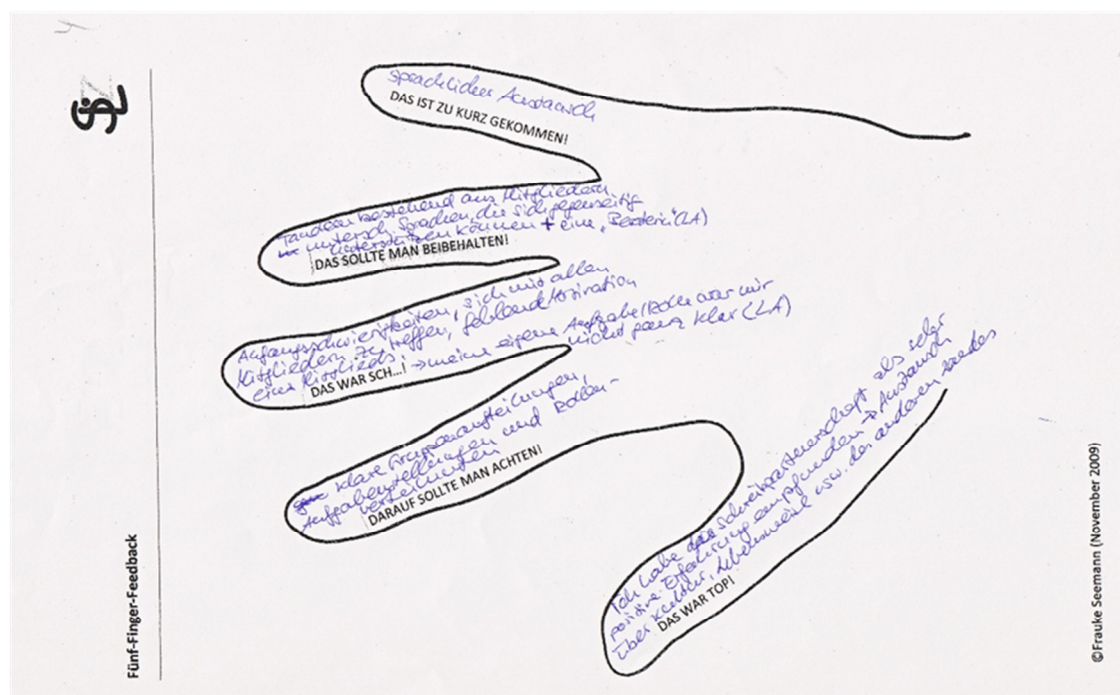 SLZ
Fünf-Finger-Feedback
sprachlicher Austausch
DAS IST ZU KURZ GEKOMMEN!
Tandem bestehend aus Mitgliedern
untersch. Sprachen, die sich gegenseitig
unterstützen können + eine „Beraterin“(LA)
DAS SOLLTE MAN BEIBEHALTEN!
Anfangsschwierigkeiten, sich mit allen
Mitgliedern zu treffen, fehlende Motivation
eines Mitglieds! → meine eigene Aufgabe/Rolle war mir
nicht ganz klar (LA)
DAS WAR SCH...!
klare Gruppenaufteilungen,
Aufgabenstellungen und Rollen-
DARAUF SOLLTE MAN ACHTEN!
Ich habe die Schreibpartnerschaft als sehr
positive Erfahrung empfunden → Austausch
über Kultur, Lebensweise usw. des anderen Landes
DAS WAR TOP!
©Frauke Seemann (November 2009)